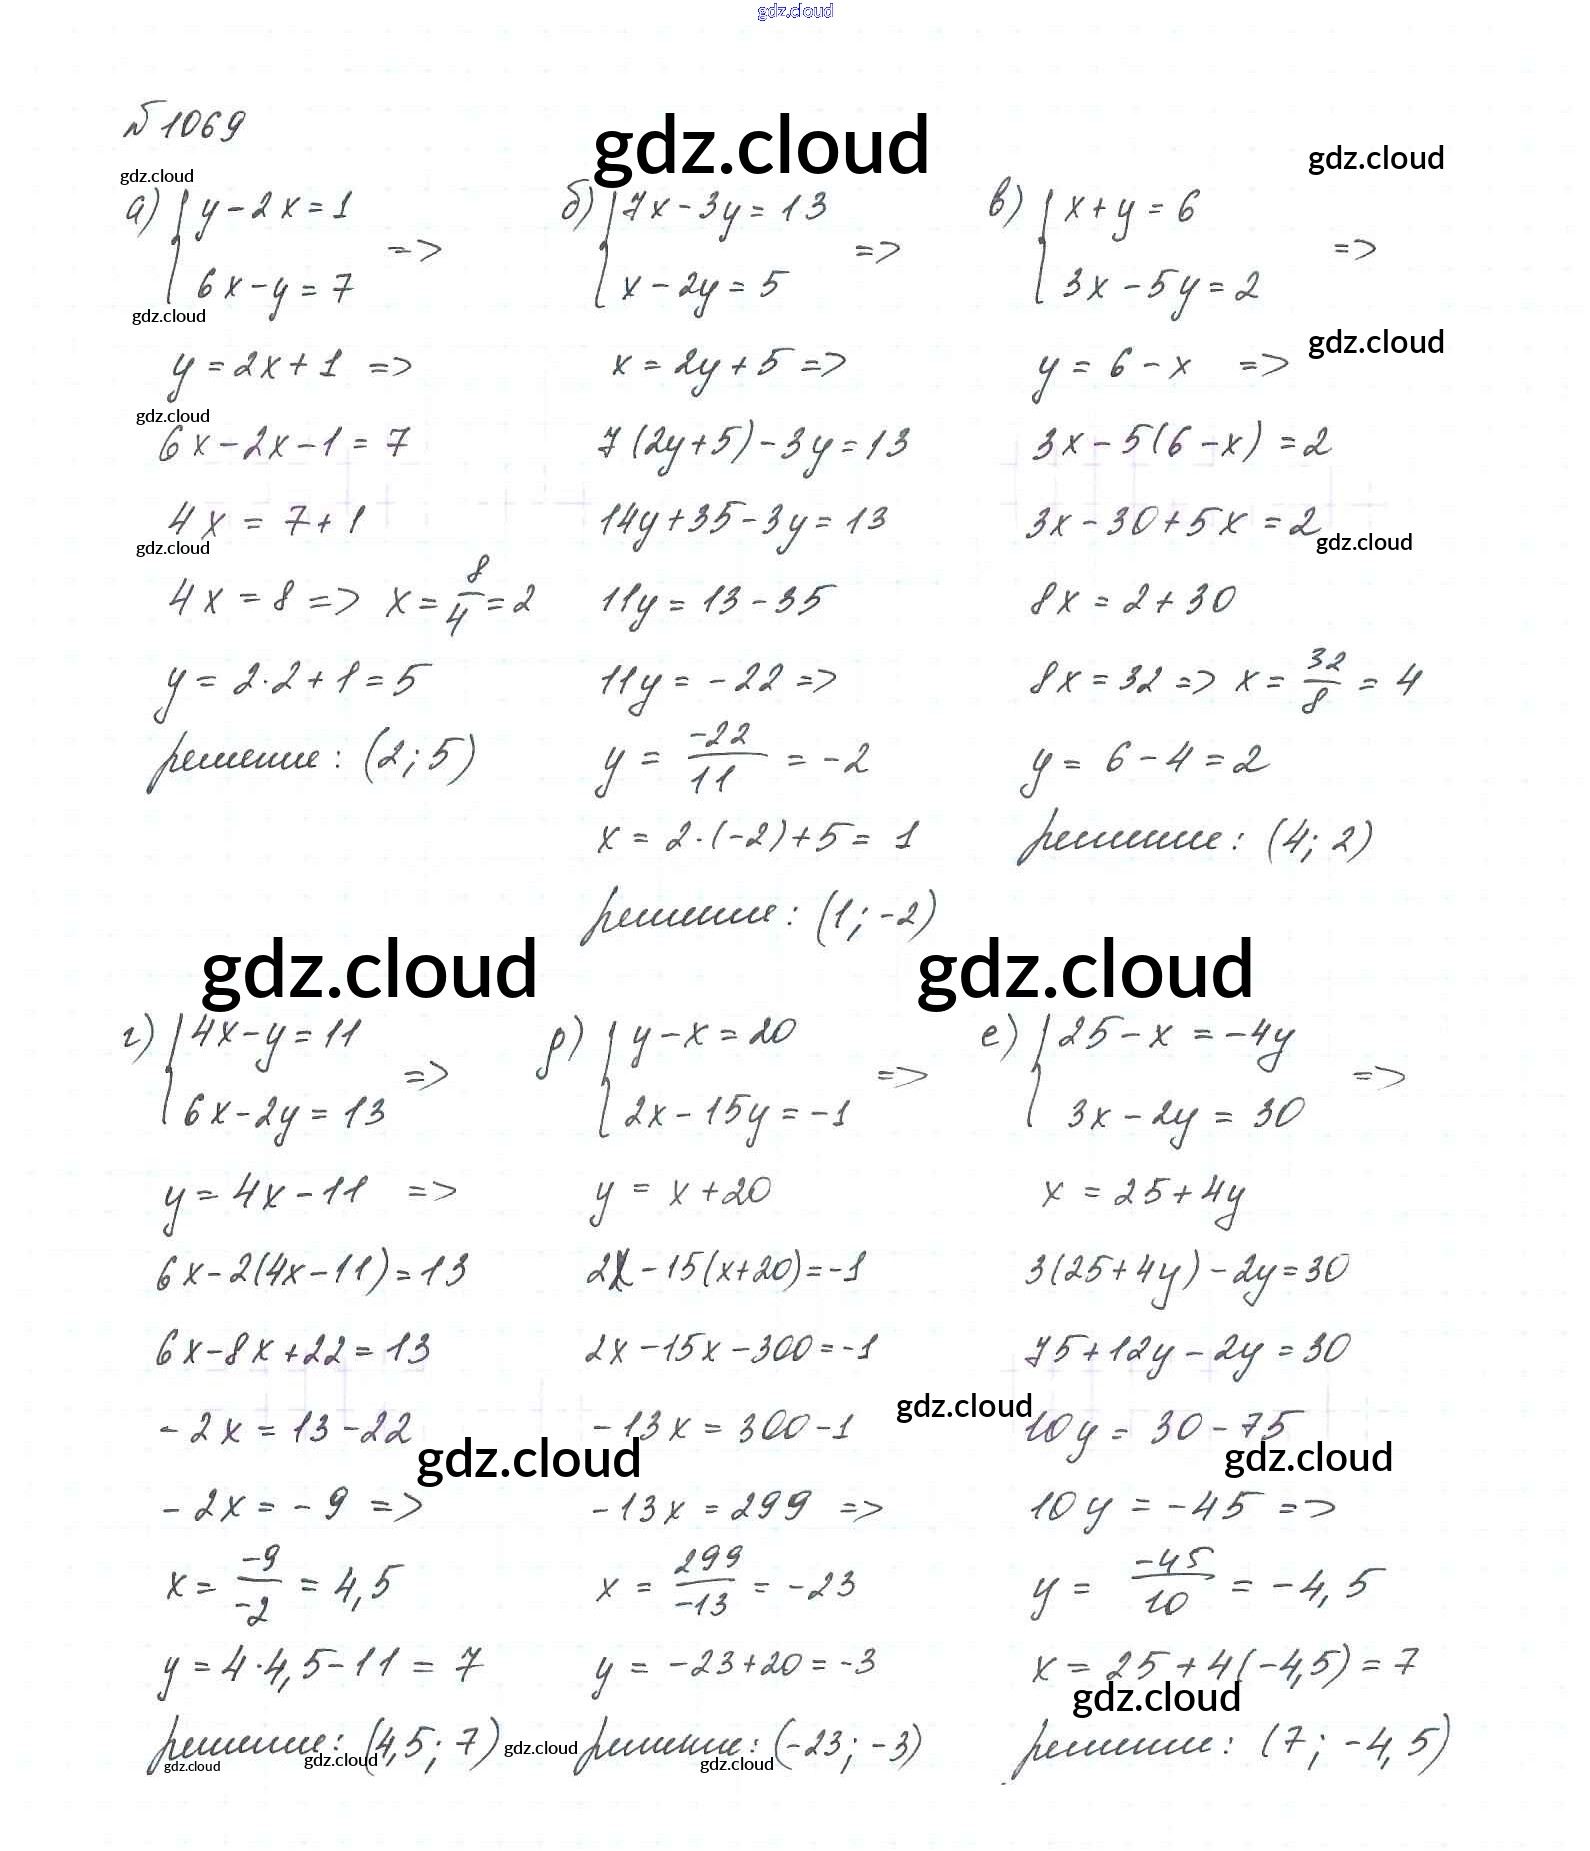 gdz.cloud
№ 1069
gdz.cloud
gdz.cloud
gdz.cloud
а) { y - 2x = 1
6x - y = 7 =>
gdz.cloud
y = 2x + 1 =>
gdz.cloud
6x - 2x - 1 = 7
4x = 7 + 1
gdz.cloud
4x = 8 => x = 8/4 = 2
y = 2·2 + 1 = 5
решение: (2; 5)
б) { 7x - 3y = 13
x - 2y = 5 =>
x = 2y + 5 =>
7(2y+5) - 3y = 13
14y + 35 - 3y = 13
11y = 13 - 35
11y = -22 =>
y = -22/11 = -2
x = 2·(-2) + 5 = 1
решение: (1; -2)
в) { x + y = 6
3x - 5y = 2 =>
gdz.cloud
y = 6 - x =>
3x - 5(6 - x) = 2
3x - 30 + 5x = 2
gdz.cloud
8x = 2 + 30
8x = 32 => x = 32/8 = 4
y = 6 - 4 = 2
решение: (4; 2)
gdz.cloud
gdz.cloud
г) { 4x - y = 11
6x - 2y = 13 =>
y = 4x - 11 =>
6x - 2(4x - 11) = 13
6x - 8x + 22 = 13
-2x = 13 - 22
gdz.cloud
-2x = -9 =>
x = -9/-2 = 4,5
y = 4·4,5 - 11 = 7
решение: (4,5; 7)
gdz.cloud
gdz.cloud
gdz.cloud
д) { y - x = 20
2x - 15y = -1 =>
y = x + 20
2x - 15(x+20) = -1
2x - 15x - 300 = -1
-13x = 300 - 1
-13x = 299 =>
x = 299/-13 = -23
y = -23 + 20 = -3
решение: (-23; -3)
gdz.cloud
е) { 25 - x = -4y
3x - 2y = 30 =>
x = 25 + 4y
3(25 + 4y) - 2y = 30
75 + 12y - 2y = 30
gdz.cloud
10y = 30 - 75
gdz.cloud
10y = -45 =>
y = -45/10 = -4,5
x = 25 + 4(-4,5) = 7
gdz.cloud
решение: (7; -4,5)